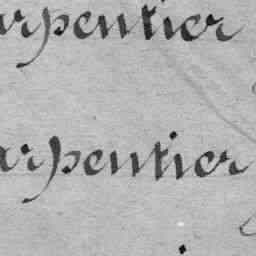 arpentier
arpentier